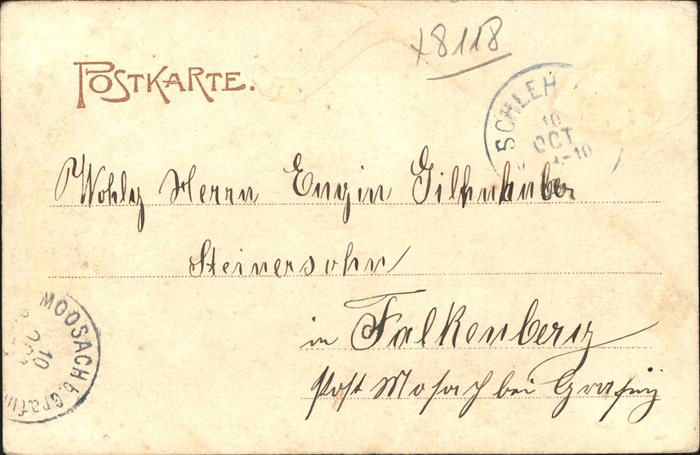 x8118
POSTKARTE.
SCHLEH
10
OCT
Wohlg Herrn
Steinersohn
in Falkenberg
Post Mosach bei Grafing
MOOSACH b. Grafin
10